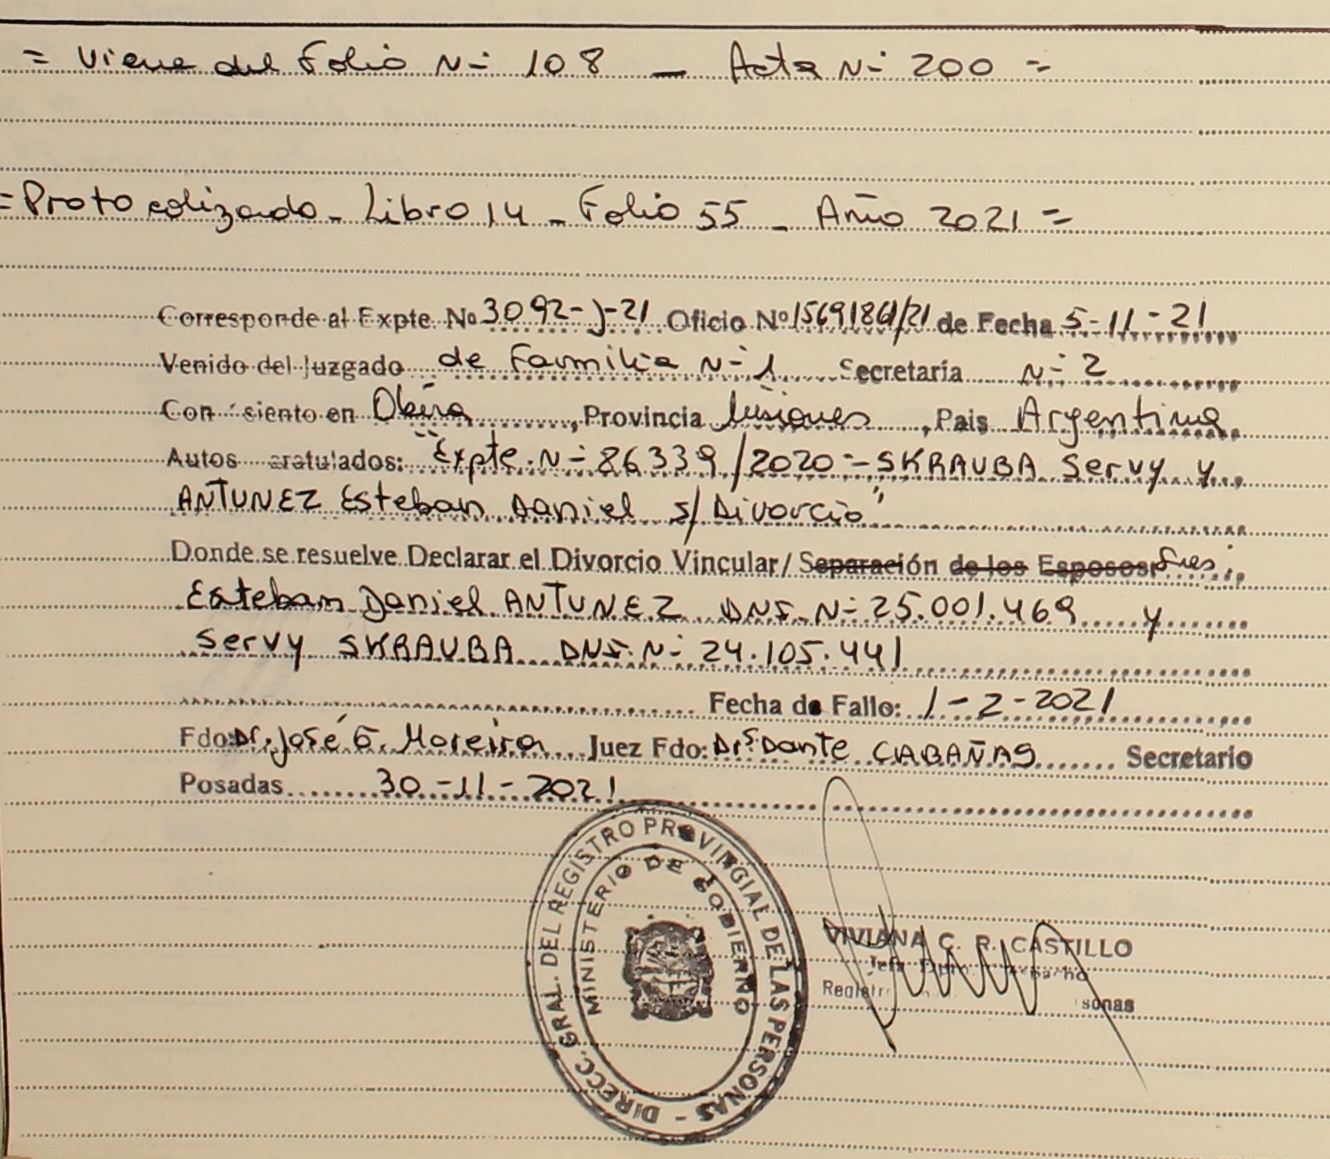 = Viene del Folio N- 108 - Acta N- 200 =
= Protocolizado - Libro 14 - Folio 55 - Año 2021 =
Corresponde al Expte. Nº 3092-J-21 Oficio Nº 15691861/21 de Fecha 5-11-21
Venido del Juzgado de Familia N-1 Secretaria N-2
Con siento en Oberá, Provincia Misiones, Pais Argentina
Autos aratulados: "Expte. N-86339/2020 - SKRAUBA Servy y
ANTUNEZ Esteban Daniel s/ Divorcio"
Donde se resuelve Declarar el Divorcio Vincular/ Separación de los Esposos Sres:
Esteban Daniel ANTUNEZ DNI. N- 25.001.469 y
Servy SKRAUBA DNI. N- 24.105.441
Fecha de Fallo: 1-2-2021
Fdo: Dr. José G. Moreira Juez Fdo: Dr. Dante CABAÑAS Secretario
Posadas 30-11-2021
DIRECC. GRAL. DEL REGISTRO PROVINCIAL DE LAS PERSONAS -
MINISTERIO DE GOBIERNO
VIVIANA C. R. CASTILLO